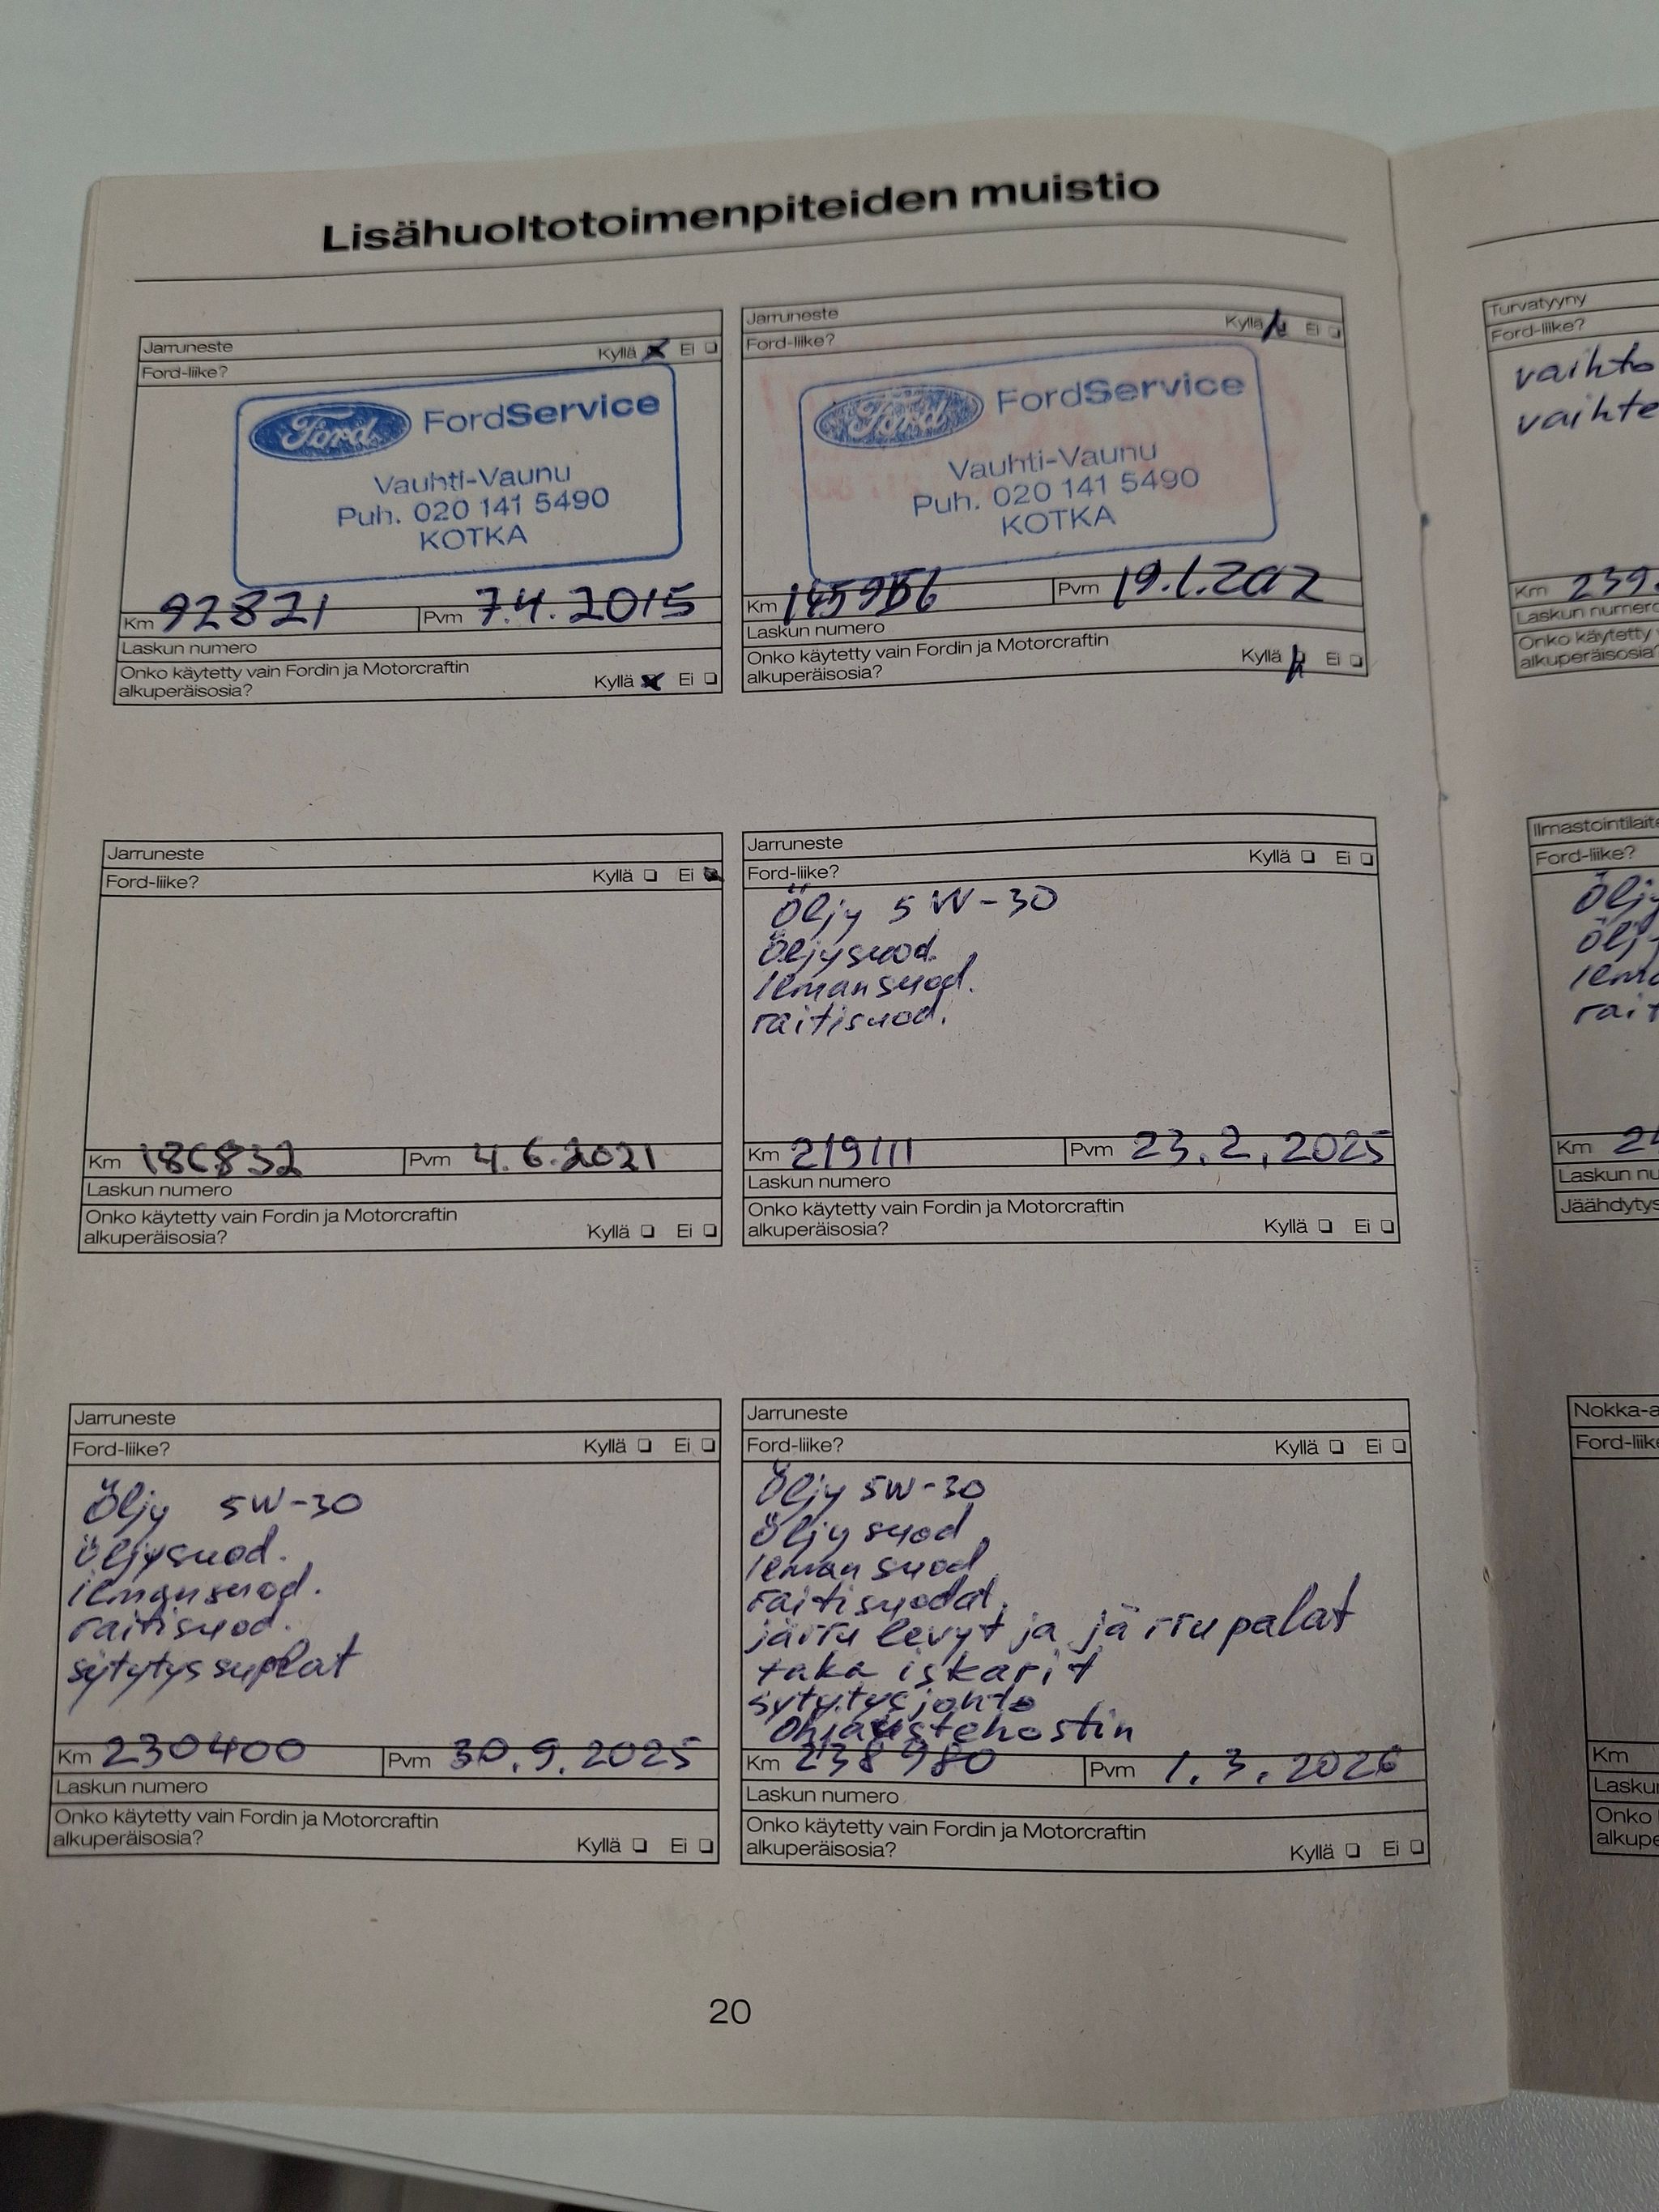 Lisähuoltotoimenpiteiden muistio
Jarruneste
Ford-liike? Kyllä Ei
Ford FordService
Vauhti-Vaunu
Puh. 020 141 5490
KOTKA
Km 92821 Pvm 7.4.2015
Laskun numero
Onko käytetty vain Fordin ja Motorcraftin
alkuperäisosia? Kyllä Ei
Jarruneste
Ford-liike? Kyllä Ei
Ford FordService
Vauhti-Vaunu
Puh. 020 141 5490
KOTKA
Km Pvm
Laskun numero
Onko käytetty vain Fordin ja Motorcraftin
alkuperäisosia? Kyllä Ei
Jarruneste
Ford-liike? Kyllä Ei
Km Pvm 4.6.2021
Laskun numero
Onko käytetty vain Fordin ja Motorcraftin
alkuperäisosia? Kyllä Ei
Jarruneste
Ford-liike? Kyllä Ei
Öljy 5W-30
Öljysuod.
Ilmansuod.
raitisuod.
Km 219111 Pvm 23.2.2025
Laskun numero
Onko käytetty vain Fordin ja Motorcraftin
alkuperäisosia? Kyllä Ei
Jarruneste
Ford-liike? Kyllä Ei
Öljy 5W-30
Öljysuod.
ilmansuod.
raitisuod.
Km 230400 Pvm 30.9.2025
Laskun numero
Onko käytetty vain Fordin ja Motorcraftin
alkuperäisosia? Kyllä Ei
Jarruneste
Ford-liike? Kyllä Ei
Öljy 5W-30
Öljy suod
Ilman suod
raitisuodat.
järru levyt ja järrupalat
taka iskarit
sytytysjohto
Ohjaustehostin
Km 238980 Pvm 1.3.2026
Laskun numero
Onko käytetty vain Fordin ja Motorcraftin
alkuperäisosia? Kyllä Ei
20
Turvatyyny
Ford-liike?
vaihto
vaihte
Km 239
Laskun numero
Onko käytetty
alkuperäisosia?
Ilmastointilaite
Ford-liike?
Öljy
Km 2
Laskun nu
Jäähdytys
Nokka-a
Ford-liik
Km
Lasku
Onko
alkupe